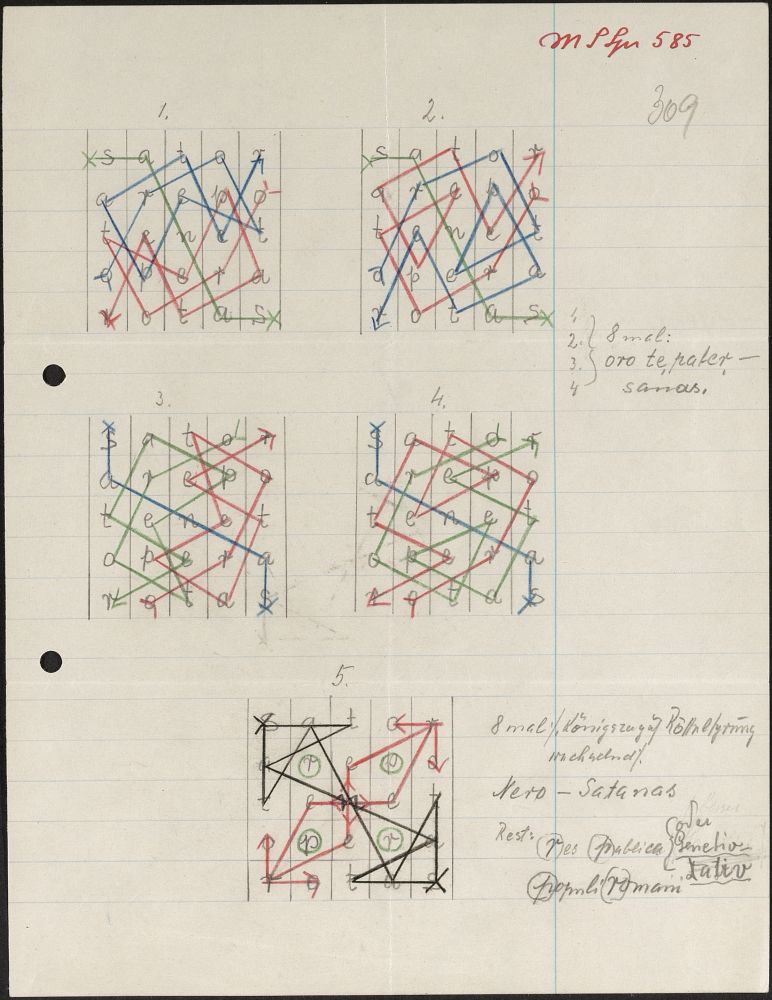 M S Gn 585
309
1.
2.
s a t o r
a r e p o
t e n e t
o p e r a
r o t a s
s a t o r
a r e p o
t e n e t
o p e r a
r o t a s
1.
2. 8 mal:
3. oro te, pater, —
4 sanas.
3.
4.
s a t o r
a r e p o
t e n e t
o p e r a
r o t a s
s a t o r
a r e p o
t e n e t
o p e r a
r o t a s
5.
s a t o r
a r e p o
t e n e t
o p e r a
r o t a s
8 mal /. Königszug / Rösselsprung
wechselnd /.
Nero – Satanas
Rest: res publica oder Genetiv-
populi romani Dativ